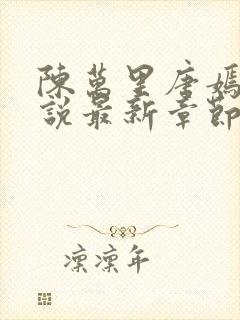 陳萬里唐嫣
說最新章節
凜凜年